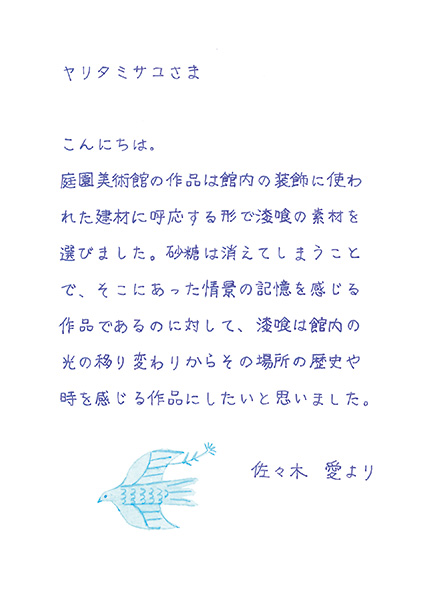 ヤリタミサコさま
こんにちは。
庭園美術館の作品は館内の装飾に使わ
れた建材に呼応する形で漆喰の素材を
選びました。砂糖は消えてしまうこと
で、そこにあった情景の記憶を感じる
作品であるのに対して、漆喰は館内の
光の移り変わりからその場所の歴史や
時を感じる作品にしたいと思いました。
佐々木 愛より